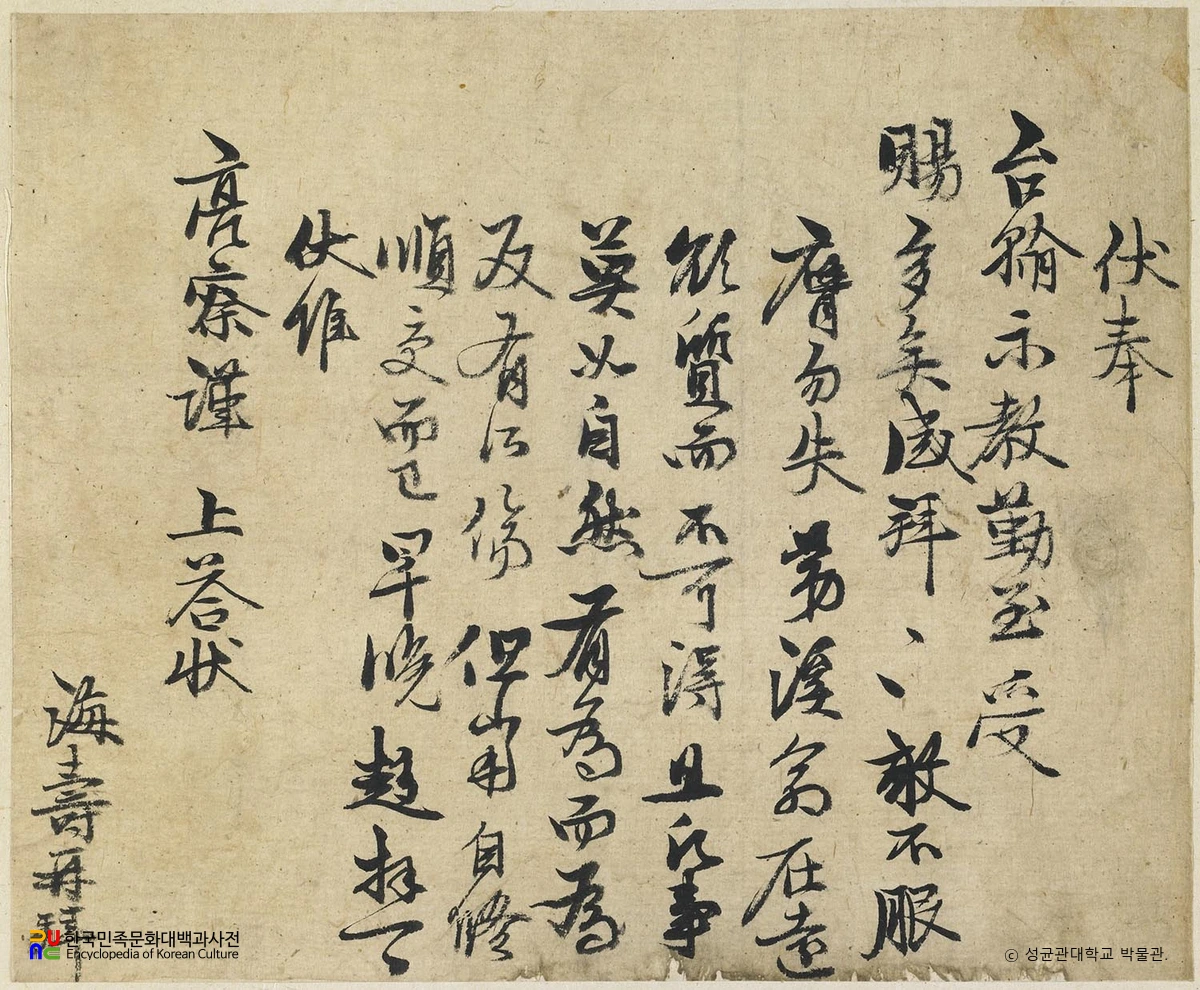 伏奉
台翰示教勤至受
賜多矣感拜〻敢不服
膺勿失第溪翁在遠
欲質而不可得且凡事
莫如自然有為而為
反有所傷但當自修
順受而已早晚趨拜
伏惟
亮察謹 上答狀
海壽再拜
한국민족문화대백과사전
Encyclopedia of Korean Culture
ⓒ 성균관대학교 박물관.